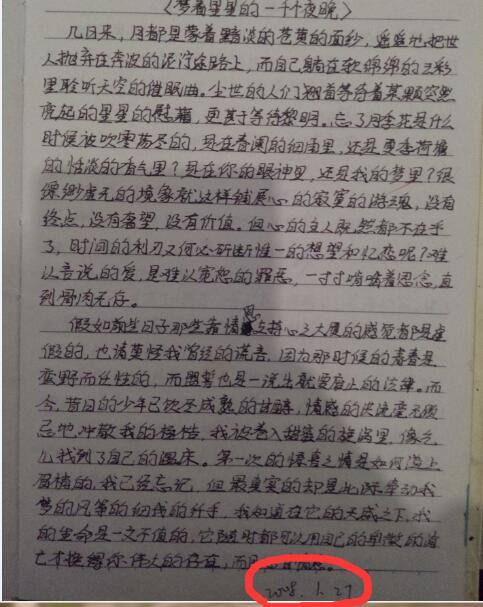 《梦着星星的一千个夜晚》
几日来,月都是蒙着黯淡的苍黄的面纱,遥遥地把世
人抛弃在奔波的泥泞途路上,而自己躺在软绵绵的云彩
里聆听天空的催眠曲。尘世的人们翘首等待着某颗突然
亮起的星星的慰藉,更甚于等待黎明。忘了月季花是什么
时候被吹零荡尽的,是在春阑的细雨里,还是夏季荷塘
的恬淡的香气里?是在你的眼神里,还是我的梦里?很
缥缈虚无的境象就这样铺展心的寂寞的游魂,没有
终点,没有奢望,没有价值。但心的主人既然都不在乎
了,时间的利刃又何必斩断惟一的想望和忆恋呢?难
以言说的爱,是难以宽恕的罪恶,一寸寸啃啮着思念,直
到骨肉无存。
假如前些日子那些靠情支撑心之大厦的感觉都是虚
假的,也请莫怪我曾经的谎言,因为那时候的青春是
蛮野而任性的,而盟誓也是一说出就爱上的法律。而
今,昔日的少年已饮尽成熟的甘醇,情感的洪流毫无顾
忌地冲破我的桎梏,我被卷入甜蜜的旋涡里,像孩
儿找到了自己的温床。第一次的惊喜之情是如何海上
的,我已经忘记,但最真实的却是此际牵动我
梦的风筝的细线的纤手,我知道在它的天威之下,我
的生命是一文不值的,它随时都可以用自己的
亡才能 你伟大的存在,而
2008.1.27